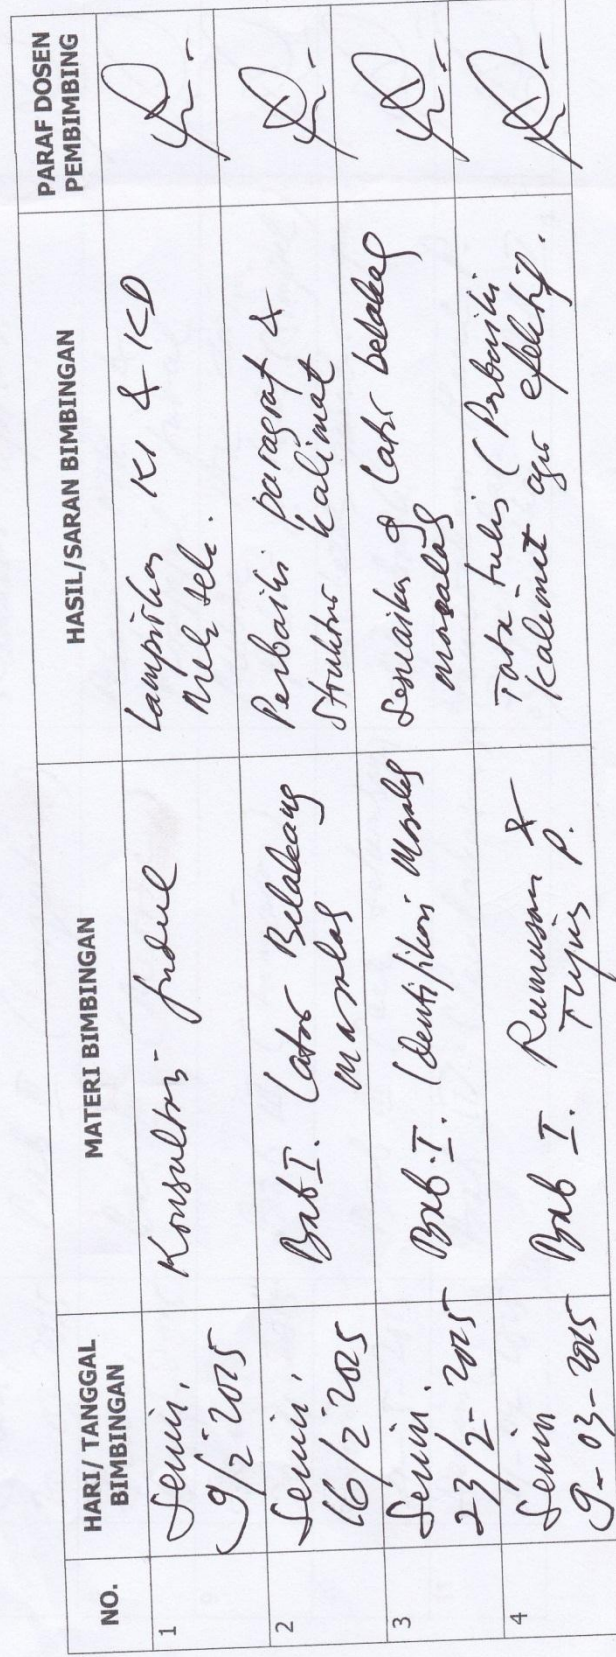 NO.
HARI/ TANGGAL
BIMBINGAN
MATERI BIMBINGAN
HASIL/SARAN BIMBINGAN
PARAF DOSEN
PEMBIMBING
1
Senin.
9/2-2015
Konsultasi Judul
Lampirkan KI & KD
2
Senin.
16/2-2015
Bab I. Latar Belakang
masalah
Perbaiki paragraf &
Struktur kalimat
3
Senin.
23/2-2015
Bab.I. Identifikasi Masalah
Sesuaikan dg latar belakang
masalah
4
Senin
9-03-2015
Bab I. Rumusan &
Tujuan P.
Tata tulis (Perbaiki
kalimat agar efektif.